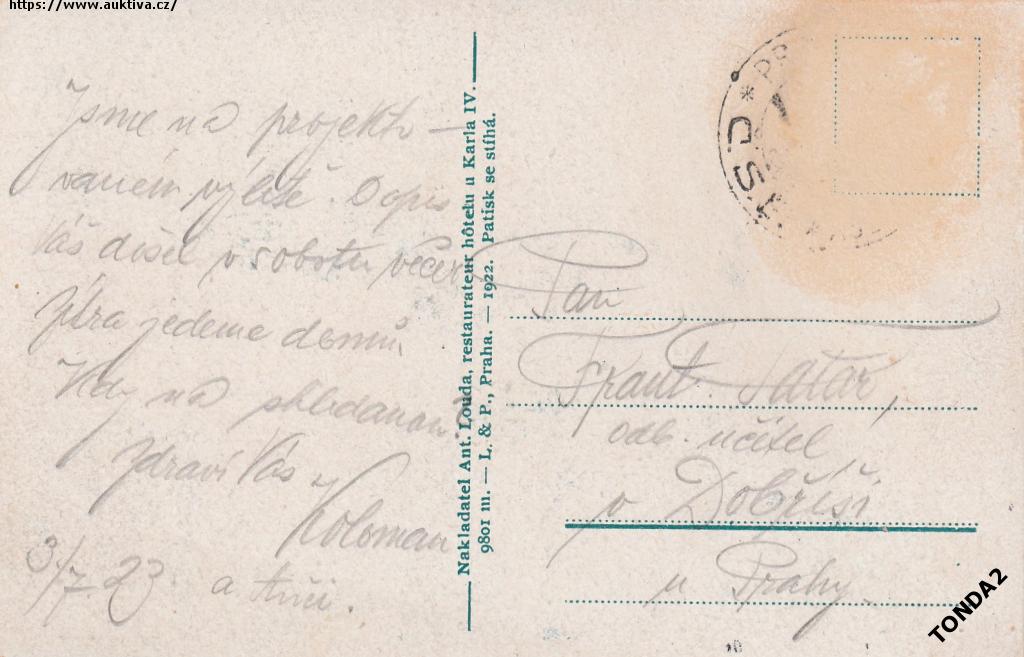 https://www.auktiva.cz/
Jsme na projekto-
vaném výletě. Dopis
Váš došel v sobotu večer
Zítra jedeme domů.
Kdy na shledanou?
Zdraví Vás
Koloman
3/7.23 a
Nakladatel Ant. Louda, restaurateur hôtelu u Karla IV.
9801 m. — L. & P., Praha. — 1922. Patisk se stíhá.
* PR
ČSR
Pan
Frant.
odb. učitel
v Dobříši
u Prahy
TONDA2